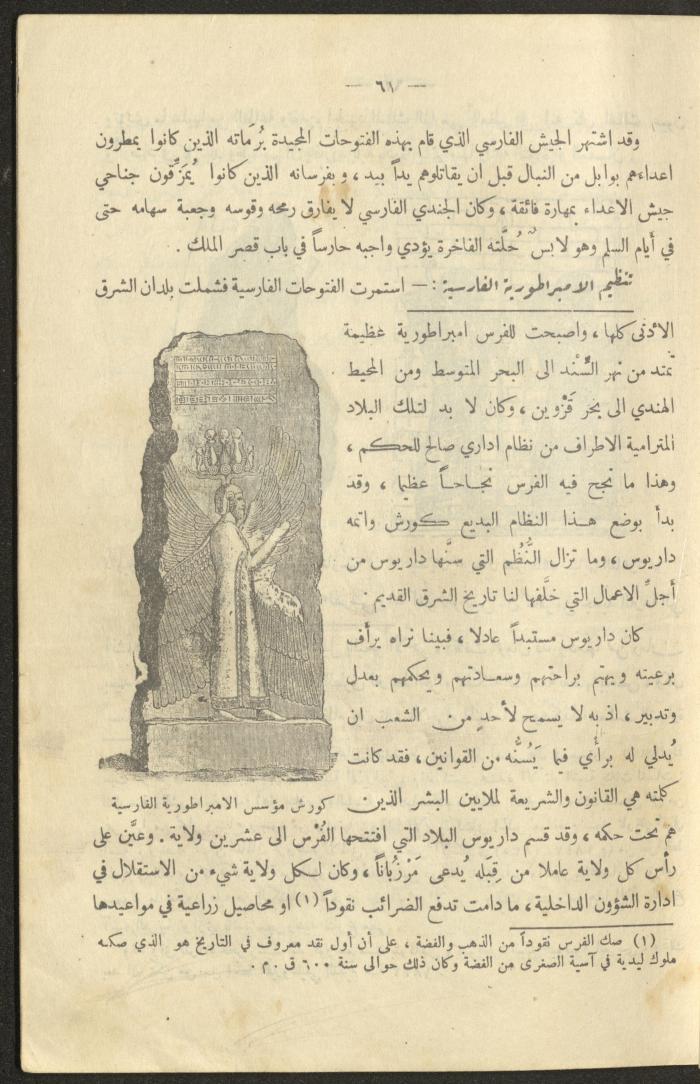 — ٦١ —
وقد اشتهر الجيش الفارسي الذي قام بهذه الفتوحات المجيدة بِرُماته الذين كانوا يمطرون
اعداءهم بوابل من النبال قبل ان يقاتلوهم يداً بيد ، وبفرسانه الذين كانوا يُمَزِّقون جناحي
جيش الاعداء بمهارة فائقة ، وكان الجندي الفارسي لا يفارق رمحه وقوسه وجعبة سهامه حتى
في أيام السلم وهو لابسٌ حُلَّته الفاخرة يؤدي واجبه حارساً في باب قصر الملك .
تنظيم الامبراطورية الفارسية : — استمرت الفتوحات الفارسية فشملت بلدان الشرق
الأدنى كلها ، واصبحت للفرس امبراطورية عظيمة
تمتد من نهر السِّند الى البحر المتوسط ومن المحيط
الهندي الى بحر قَزْوين ، وكان لا بد لتلك البلاد
المترامية الاطراف من نظام اداري صالح للحكم ،
وهذا ما نجح فيه الفرس نجاحاً عظيما ، وقد
بدأ بوضع هذا النظام البديع كورش واتمه
داريوس ، وما تزال النُّظُم التي سنَّها داريوس من
أجلِّ الاعمال التي خلَّفها لنا تاريخ الشرق القديم .
كان داريوس مستبداً عادلا ، فبينا نراه يرأف
برعيته ويهتم براحتهم وسعادتهم ويحكمهم بعدل
وتدبير ، اذ به لا يسمح لأحدٍ من الشعب ان
يُدلي له برأي فيما يَسُنُّه من القوانين ، فقد كانت
كلمته هي القانون والشريعة لملايين البشر الذين
كورش مؤسس الامبراطورية الفارسية
هم تحت حكمه ، وقد قسم داريوس البلاد التي افتتحها الفُرْس الى عشرين ولاية . وعيَّن على
رأس كل ولاية عاملا من قِبَله يُدعى مَرْزُباناً ، وكان لكل ولاية شيء من الاستقلال في
ادارة الشؤون الداخلية ، ما دامت تدفع الضرائب نقوداً (١) او محاصيل زراعية في مواعيدها
(١) صك الفرس نقوداً من الذهب والفضة ، على أن أول نقد معروف في التاريخ هو الذي صكه
ملوك ليدية في آسية الصغرى من الفضة وكان ذلك حوالى سنة ٦٠٠ ق . م .